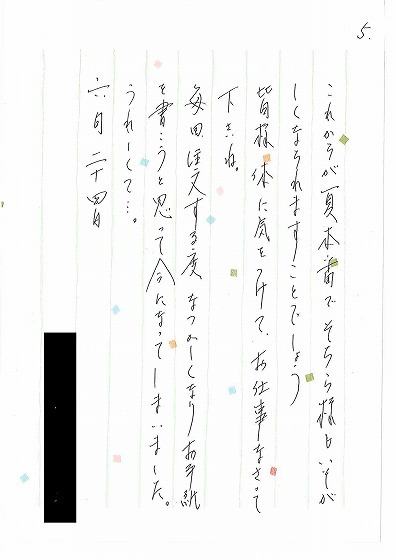 5.
これからが夏本番でそちら様もいそが
しくなられますことでしょう
皆様体に気をつけて、お仕事なさって
下さいね。
毎回注文する度なつかしくなりお手紙
を書こうと思って今になってしまいました。
うれしくて…。
六月二十四日